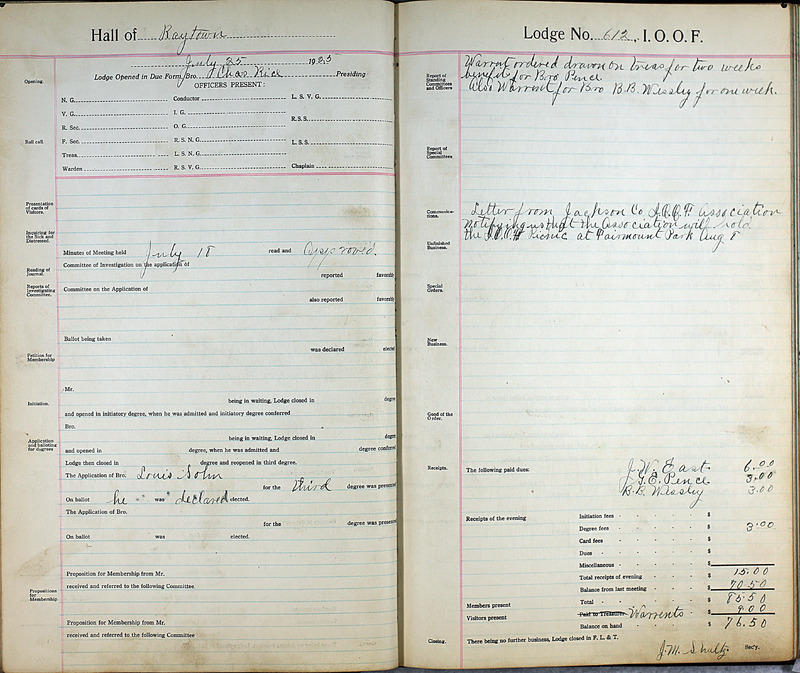 Hall of Raytown
July 25 1925
Lodge Opened in Due Form, Bro. Chas Rice Presiding
OFFICERS PRESENT:
Opening.
N. G. Conductor L. S. V. G.
V. G. I. G. R.S.S.
R. Sec. O. G.
Roll call.
F. Sec. R. S. N. G. L. S. S.
Treas. L. S. N. G.
Warden R. S. V. G. Chaplain
Presentation of cards of Visitors.
Inquiring for the Sick and Distressed.
Minutes of Meeting held July 18 read and Approved.
Reading of Journal.
Committee of Investigation on the application of
reported favorably
Reports of Investigating Committee.
Committee on the Application of
also reported favorably
Ballot being taken
was declared elected
Petition for Membership
Mr.
Initiation.
being in waiting, Lodge closed in degree
and opened in initiatory degree, when he was admitted and initiatory degree conferred
Bro.
Application and balloting for degrees
being in waiting, Lodge closed in degree
and opened in degree, when he was admitted and degree conferred
Lodge then closed in degree and reopened in third degree.
The Application of Bro. Louis Sohn
for the third degree was presented
On ballot he was declared elected.
The Application of Bro.
for the degree was presented
On ballot was elected.
Proposition for Membership from Mr.
received and referred to the following Committee
Propositions for Membership
Proposition for Membership from Mr.
received and referred to the following Committee
Lodge No. 612, I. O. O. F.
Report of Standing Committees and Officers
Warrent ordered drawn on treas for two weeks
benefit for Bro Pence
Also Warrent for Bro B.B. Wessley for one week.
Report of Special Committees
Communications.
Letter from Jackson Co I.O.O.F. Association
notifying us that the association will hold
the I.O.O.F. Picnic at Fairmount Park Aug 8
Unfinished Business.
Special Orders.
New Business.
Good of the Order.
Receipts.
The following paid dues: J. W. East 6.00
J. E. Pence 3.00
B. B. Wessley 3.00
Receipts of the evening
Initiation fees $
Degree fees $ 3.00
Card fees $
Dues $
Miscellaneous $
Total receipts of evening $ 15.00
Balance from last meeting $ 70.50
Members present
Total $ 85.50
Visitors present
Paid to Treasurer Warrents $ 9.00
Balance on hand $ 76.50
Closing.
There being no further business, Lodge closed in F. L. & T.
J. M. Shultz Sec'y.